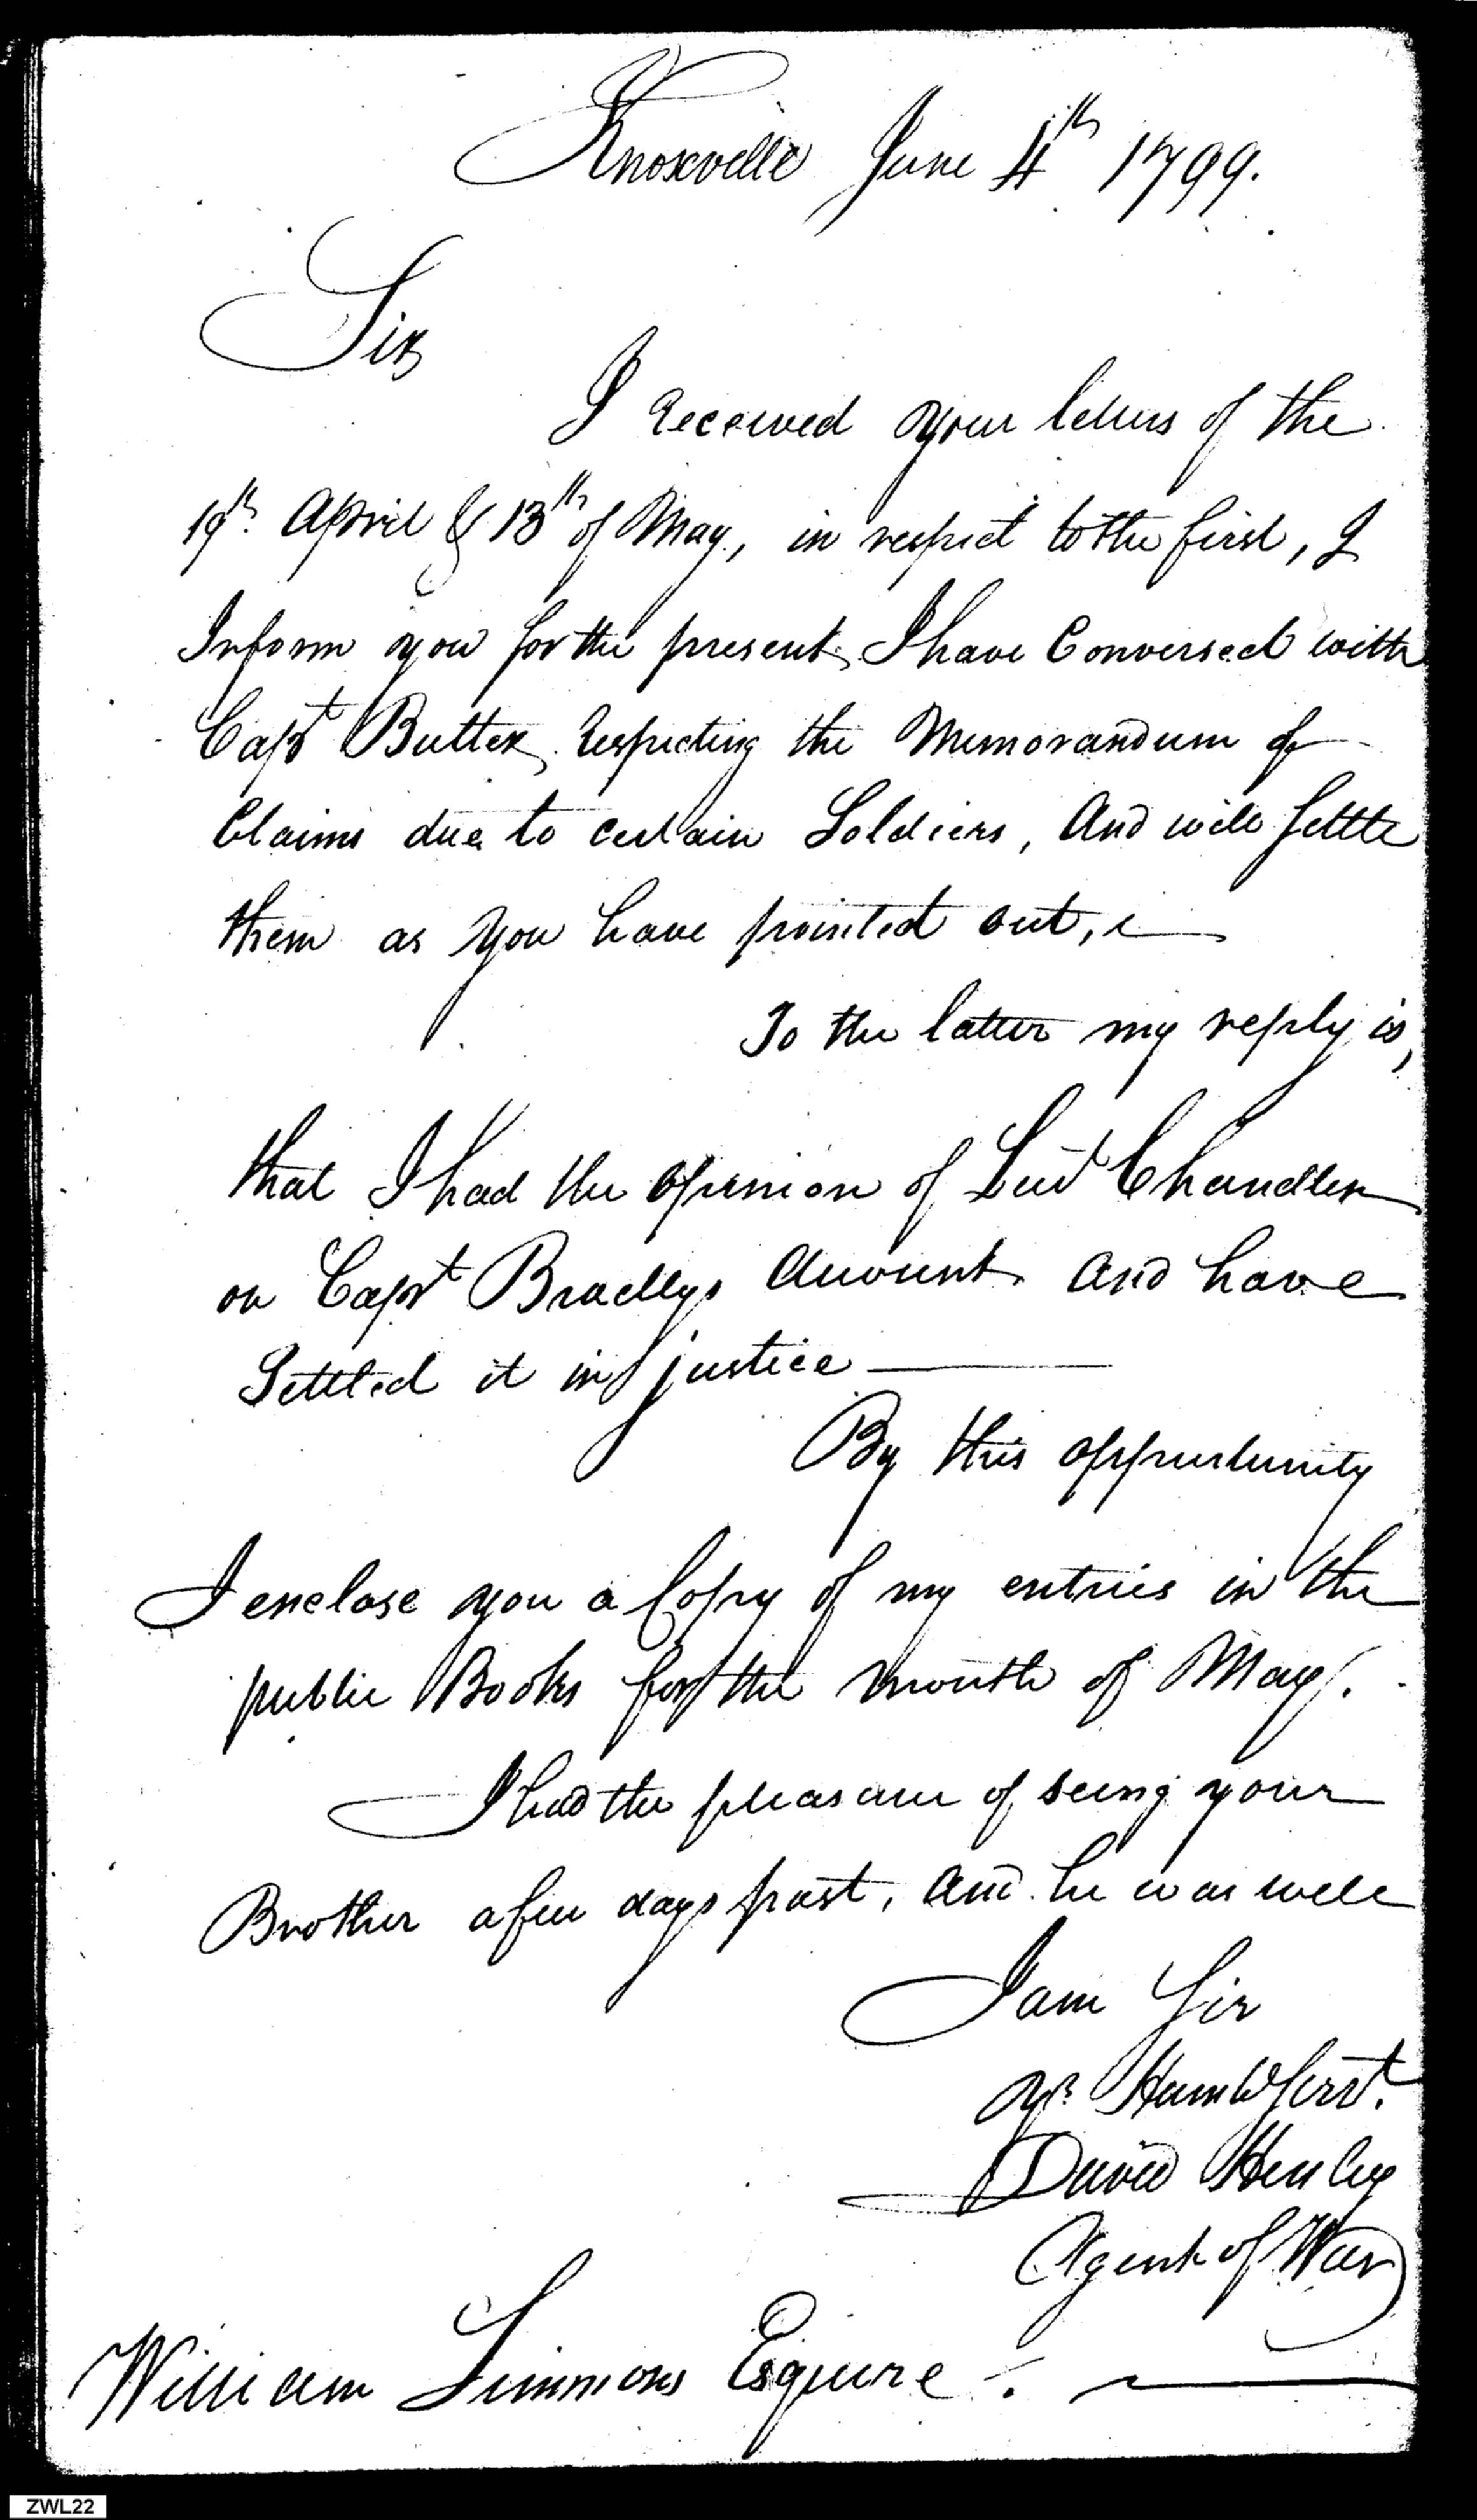 Knoxville June 4th 1799.
Sir
I received your letters of the
19th. April & 13th of May, in respect to the first, I
Inform you for the present, I have Conversed with
Capt Butler, respecting the Memorandum of
Claims due to certain Soldiers, And will settle
them as you have pointed out,
To the latter my reply is,
that I had the opinion of Lieut Chandler
on Capt Bradleys Account. And have
Settled it in justice
By this oppurtunity
I enclose you a Copy of my entries in the
public Books for the month of May.
I had the pleasure of seeing your
Brother a few days past, and he was well
I am Sir
yr. Humb Servt.
David Henley
Agent of War
William Simmons Esquire.
ZWL22